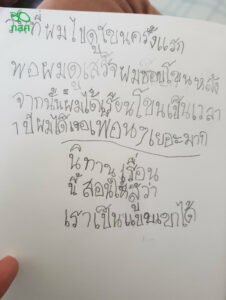 วันที่ผมไปดูโขนครั้งแรก
พอผมดูเสร็จผมชอบโขนหลัง
จากนั้นก็ผมได้เรียนโขนเป็นเวลา
1 ปี ผมได้เจอเพื่อนๆเยอะมาก
นิทานเรื่อน
นี้สอนให้รู้ว่า
เราเป็นแบบเขกได้